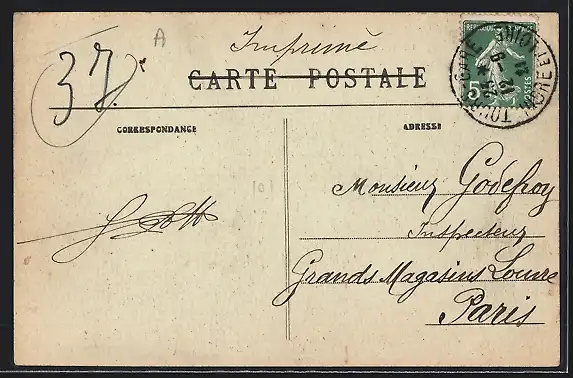 A
Imprimé
37
CARTE POSTALE
CORRESPONDANCE
ADRESSE
5
POSTES
GARE
TOURS
101
Monsieur Godefroy
Inspecteur
Grands Magasins Louvre
Paris